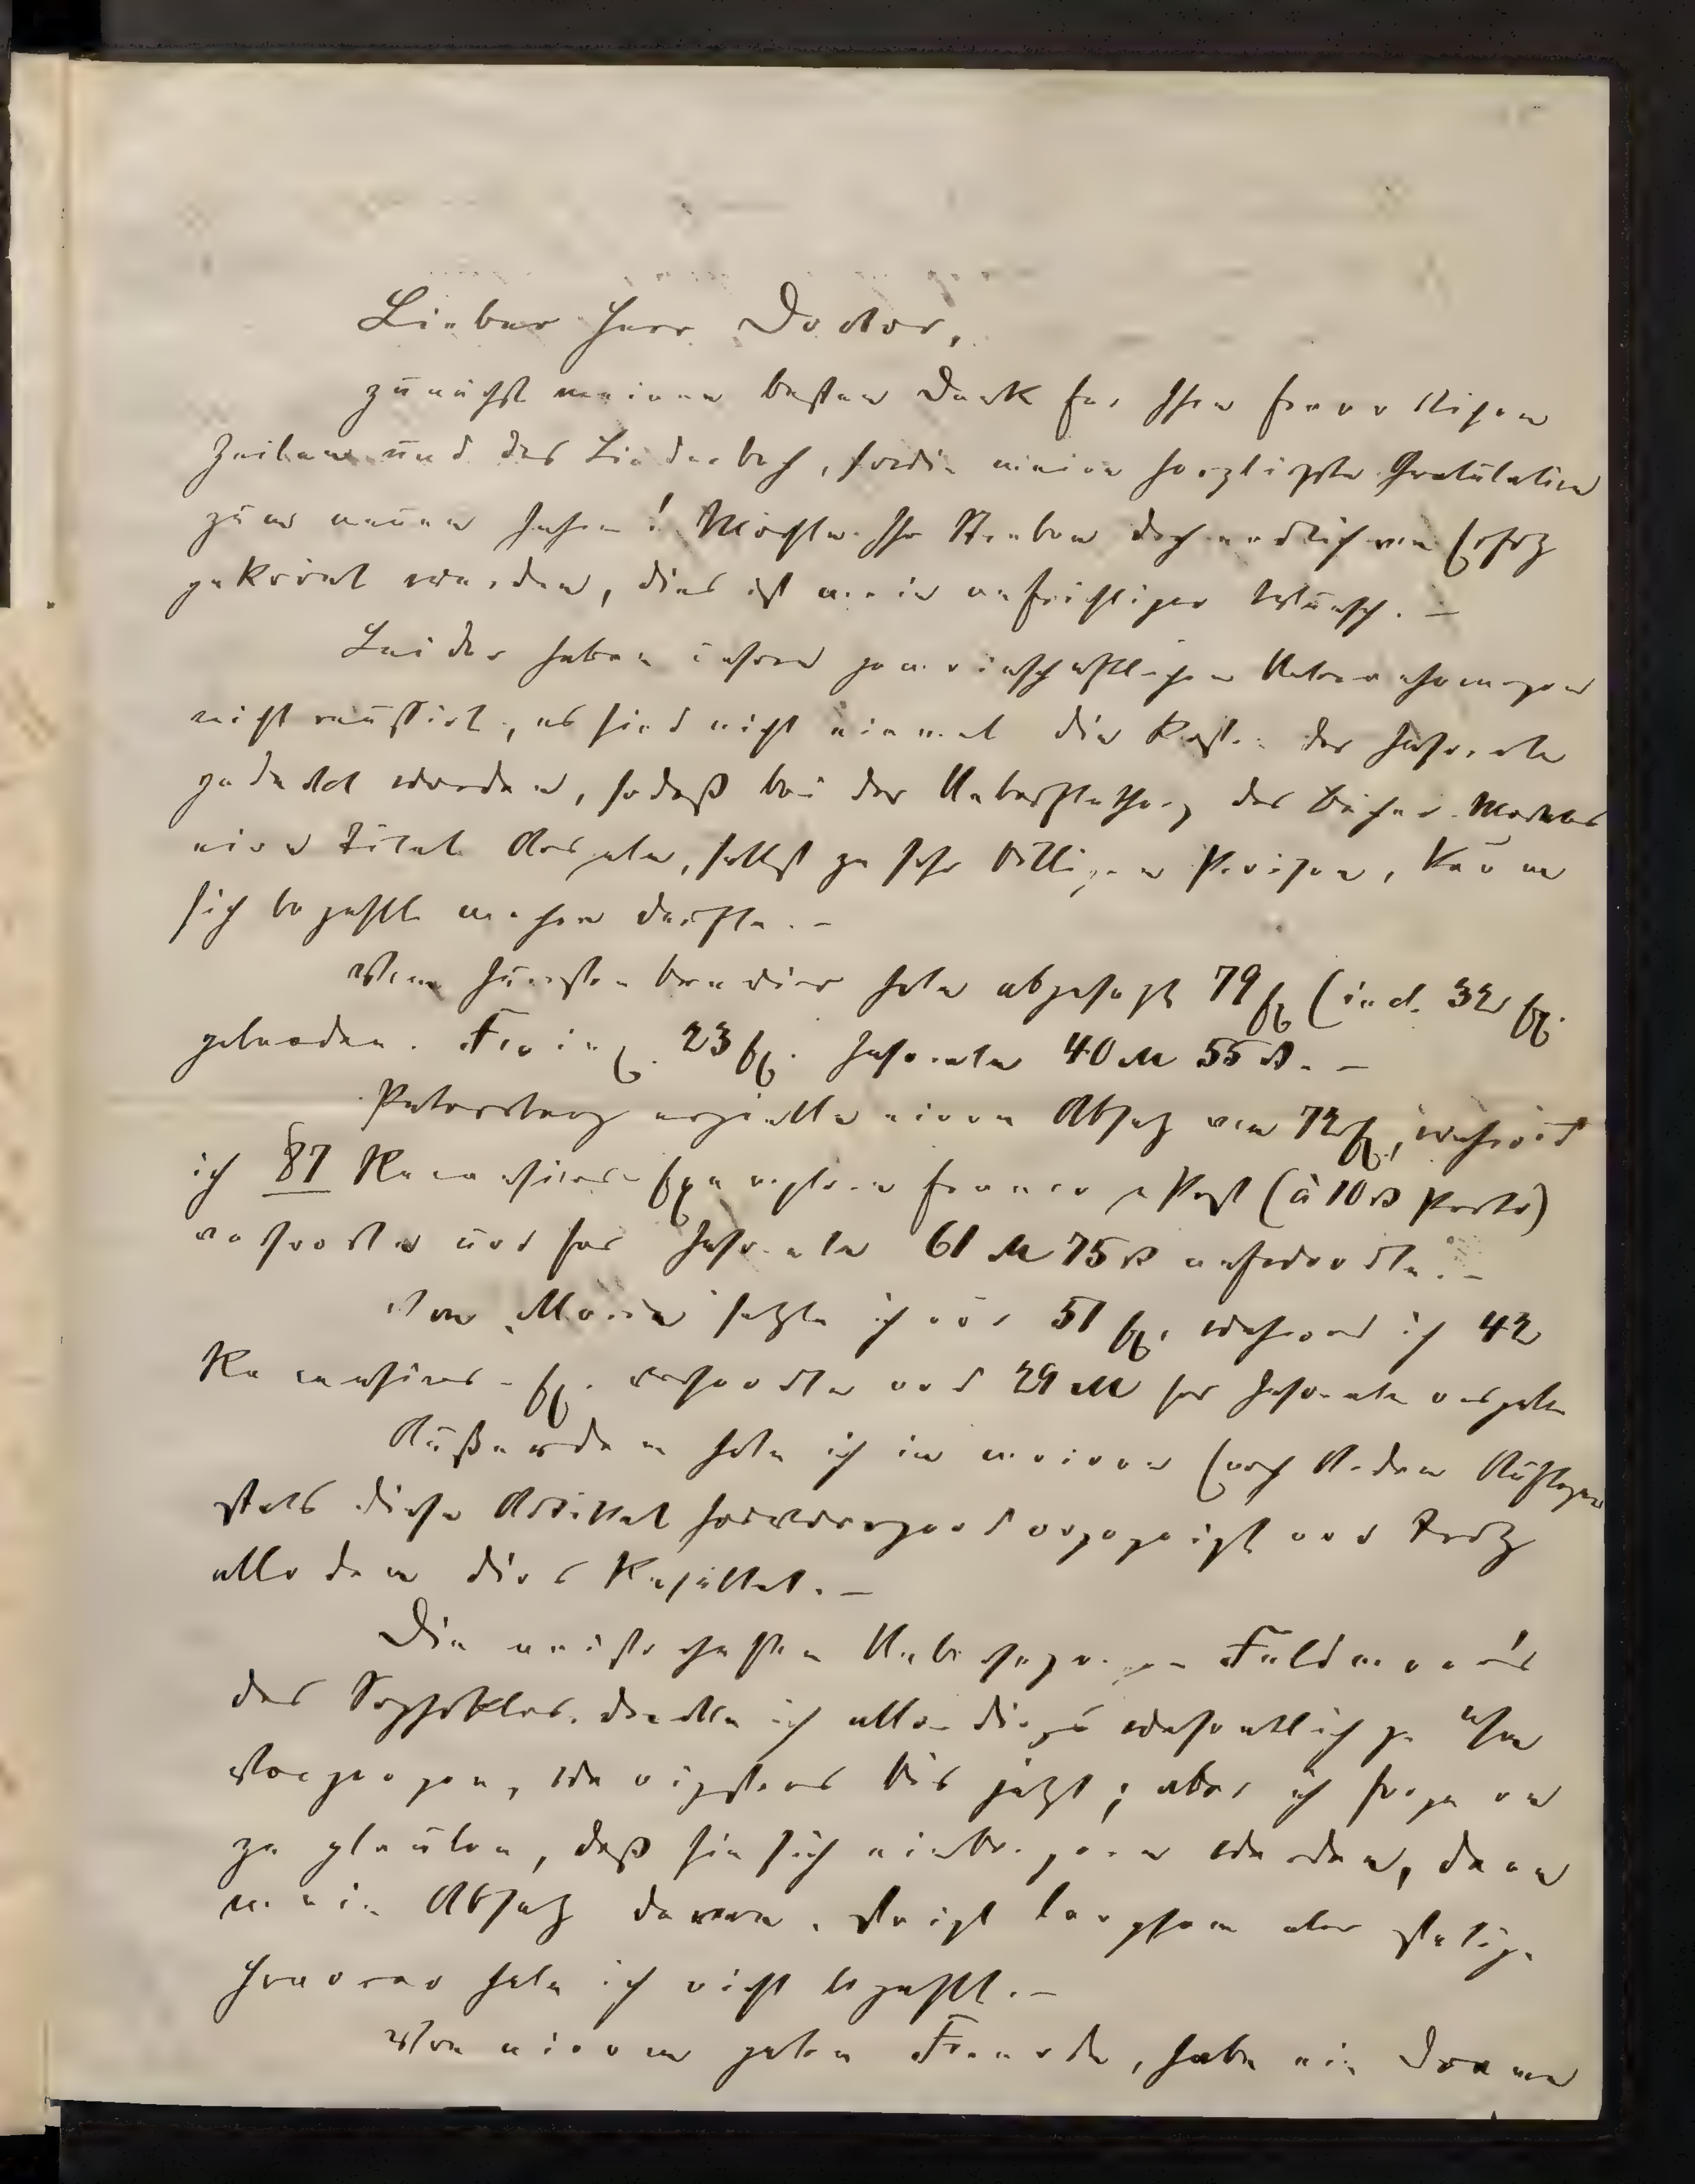 Lieber Herr Doctor,
zunächst meinen besten Dank für Ihre freundlichen
Zeilen und das Liederbuch, sowie meine herzlichste Gratulation
zum neuen Jahre! Möchte Ihr Streben doch endlich von Erfolg
gekrönt werden, dies ist mein aufrichtiger Wunsch. –
Leider haben unsere gemeinschaftlichen Unternehmungen
nicht reüssirt, es sind nicht einmal die Kosten der Inserate
gedeckt worden, sodaß bei der Ueberfluthung des Bücher-Marktes
eine Titel-Ausgabe, selbst zu sehr billigen Preisen, kaum
sich bezahlt machen dürfte. –
Vom habe abgesetzt 79 Ex (incl. 32 Ex.
gebunden. Frei 23 Ex. Inserate 40 M 55 ₰. –
Petersburg erzielte einen Absatz von 72 Ex., während
ich 87 Recensions-Exemplare franco p Post (à 10 ₰ Porto)
versandte und für Inserate 61 M 75 ₰ aufwandte. –
Von setzte ich nur 51 Ex. während ich 42
Recensions-Ex. versandte und 29 M für Inserate ausgab.
Außerdem habe ich in meinen noch Auflagen
stets diese Artikel hervorragend angezeigt und trotz
alledem dies Resultat. –
Die meisterhaften Uebersetzungen Feldmann's
des Sophokles, druckte ich allerdings wesentlich zu
Vergnügen, wenigstens bis jetzt; aber ich fange an
zu glauben, daß sie sich einbürgern werden, denn
mein Absatz davon steigt langsam aber stetig.
Honorar habe ich nicht bezahlt. –
Von einem guten Freunde, habe ein Drama